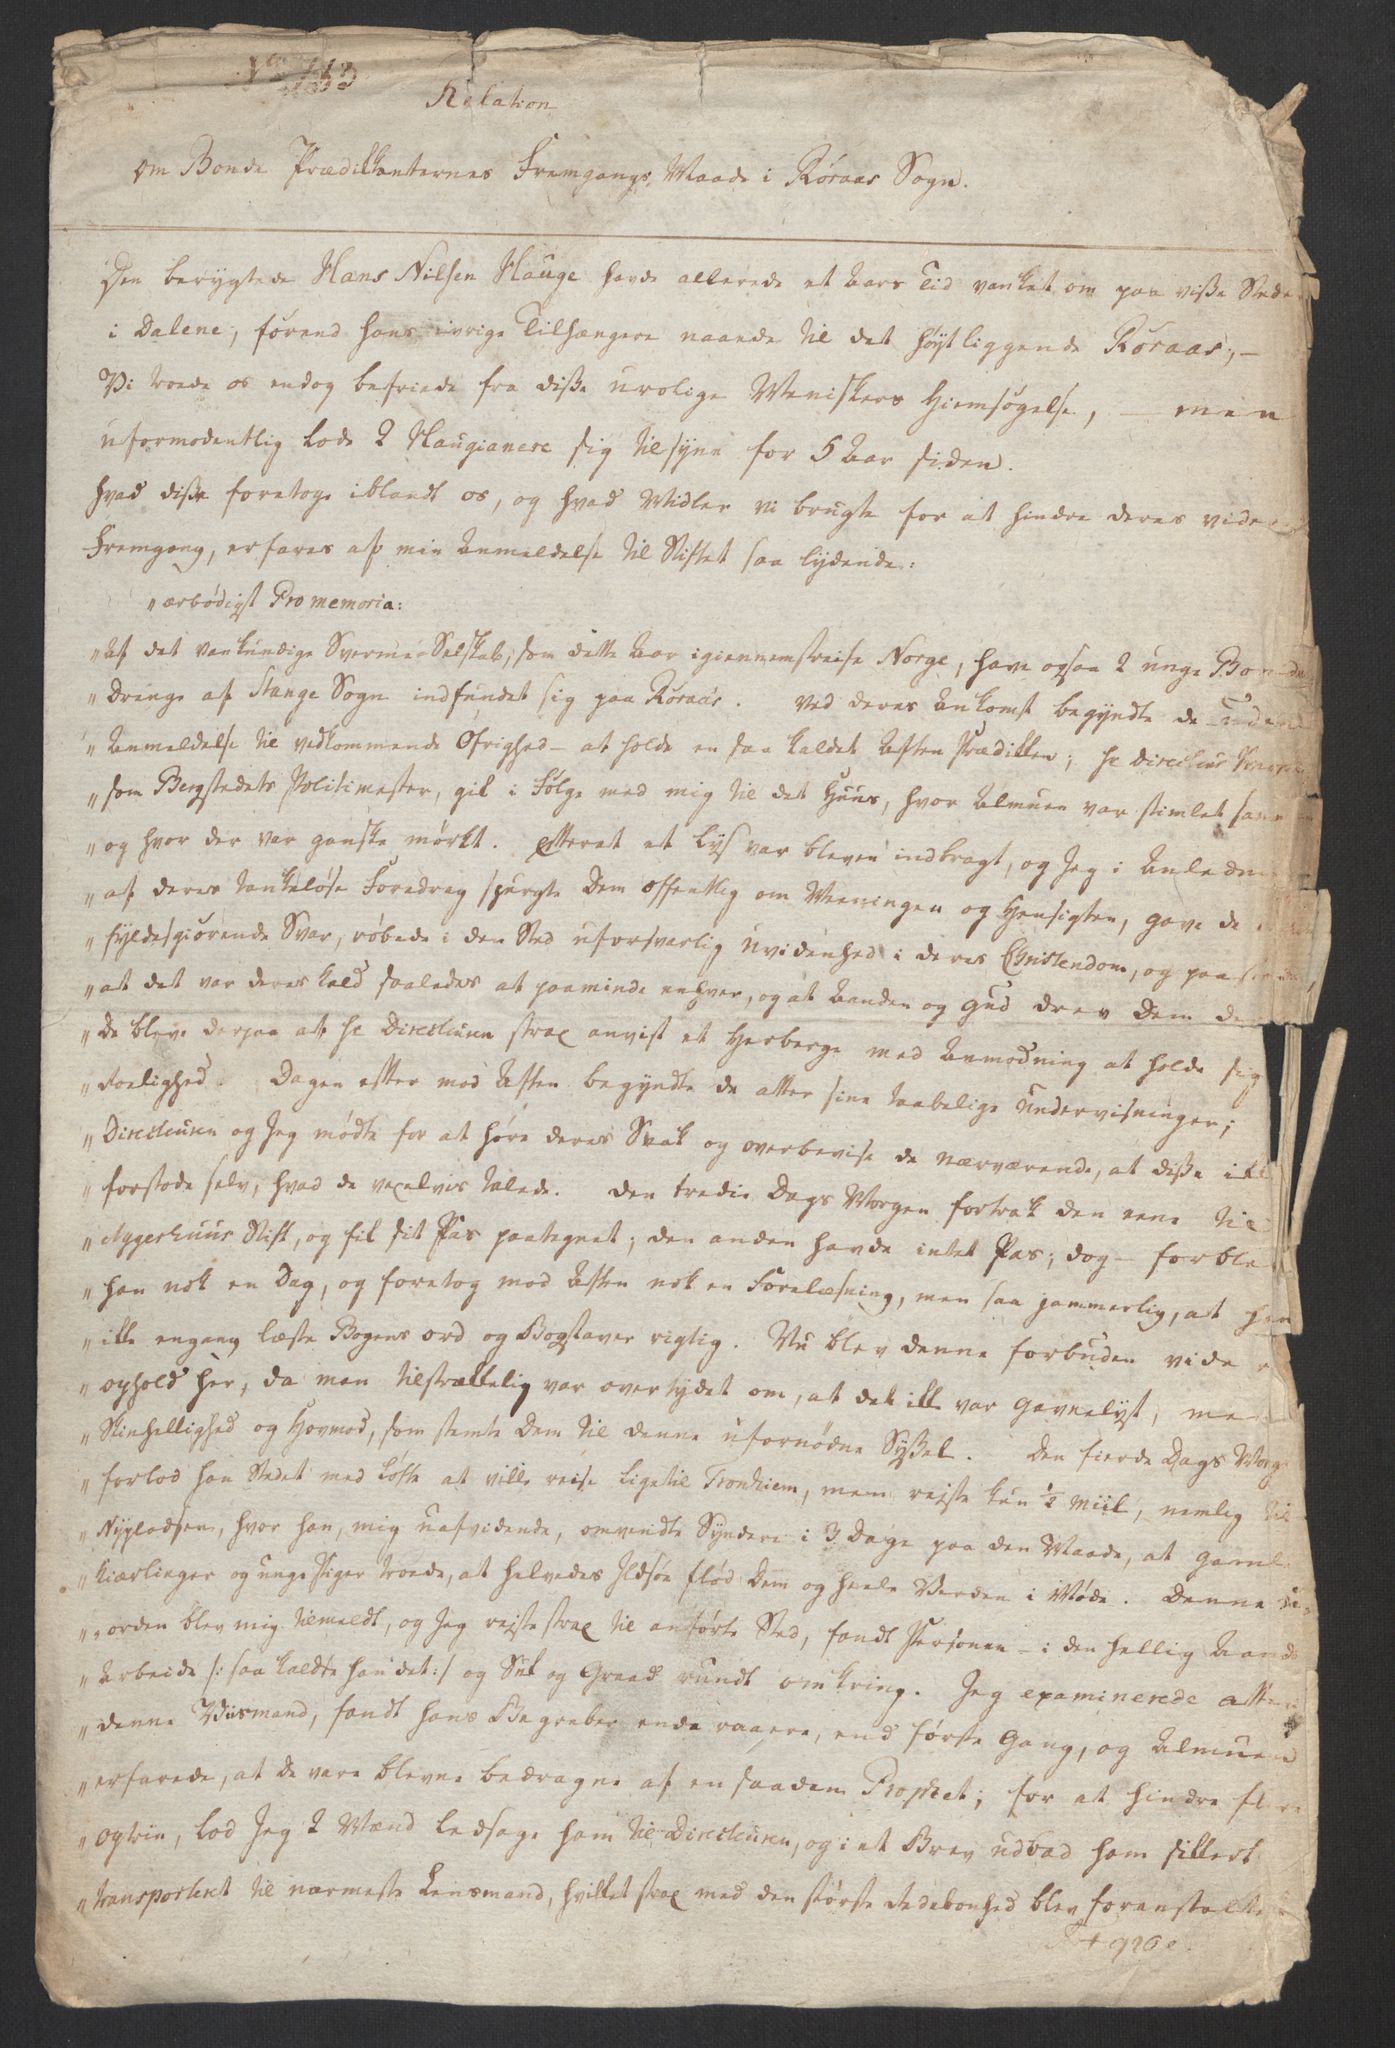 Relation
om Bonde Prædikanternes Fremgangs Maade i Røraas Sogn.
Den berygtede Hans Nilsen Hauge havde allerede et Aars Tid vanket om paa visse Stede
i Dalene, førend hans ivrige Tilhængere naaede til det høytliggende Røraas; —
Vi troede os endog befriede fra disse urolige Meniskers Hiemsøgelse, — men
uformodentlig lode 2 Haugianere sig tilsyne for 5 Aar siden.
hvad disse foretoge iblandt os, og hvad Midler vi brugte for at hindre deres videre
Fremgang, erfares af min Anmeldelse til Stiftet saa lydende:
"ærbødigst Promemoria:
"Af det vankundige Svermer Selskab, som dette Aar igiennemstreife Norge, have ogsaa 2 unge Bonde
"Drenge af Stange Sogn indfundet sig paa Røraas. Ved deres Ankomst begyndte de uden
"Anmeldelse til vedkommende Øfrighed — at holde en saa kaldet Aften Prædiken; hr Directeur
"som Bergstedets Politimester, gik i Følge med mig til det Huus, hvor Almuen var stimlet sam
"og hvor der var ganske mørkt. Efterat et Lys var bleven indbragt, og Jeg i Anledn
"af deres tankeløse Foredrag spurgte Dem offentlig om Meeningen og Hensigten, gave de
"fyldesgiørende Svar, røbede i den Sted uforsvarlig uvidenhed i deres Christendom, og paastode
"at det var deres Kald saaledes at paaminde enhver, og at Aanden og Gud drev Dem
"De bleve derpaa af hr Directeuren strax anvist et Herberge med Anmodning at holde sig
"Roelighed. Dagen efter mod Aften begyndte de atter sine taabelige Undervisninger;
"Directeuren og Jeg mødte for at høre deres Snak og overbevise de nærværende, at disse ikke
"forstode selv, hvad de vexelvis talede. Den tredie Dags Morgen fortrak den eene til
"Aggerhuus Stift, og fik sit Pas paategnet; den anden havde intet Pas; dog — forble
"han nok en Dag, og foretog mod Aften nok en Forelæsning, men saa jammerlig, at han
"ikke engang læste Bogens ord og Bogstaver rigtig. Nu blev denne forbuden videre
"ophold her, da man tilstrækkelig var overtydet om, at det ikke var Gavnelyst, men
"Skinhellighed og Hovmod, som stemte Dem til denne ufornødne Syssel. Den fierde Dags Morg
"forlod han Stedet med Løfte at ville reise ligetil Tronhiem, men reiste kun ½ Miil, nemlig til
"Nypladsen, hvor han, mig uafvidende, omvendte Syndere i 3 Dage paa den Maade, at gamle
"Kiærlinger og unge Piger troede, at helvedes Ildsøe flød Dem og heele Verden i Møde. Denne
"orden blev mig tilmeldt, og Jeg reiste strax til anførte Sted, fandt Personen — i den hellig Aands
"Arbeide /: saa kaldte han det :/ og Suk og Graad rundt omkring. Jeg examinerede atter
"denne Viismand, fandt hans Begreber ende raaere, end første Gang, og Almuen
"erfarede, at De vare blevne bedragne af en saadan Prophet; for at hindre flere
"optrin, lod Jeg 2 Mænd ledsage ham til Directeuren, og i et Brev udbad ham sikkert
"transporteret til nærmeste Lensmand, hvilket strax med den største Redebonhed blev foranstaltet